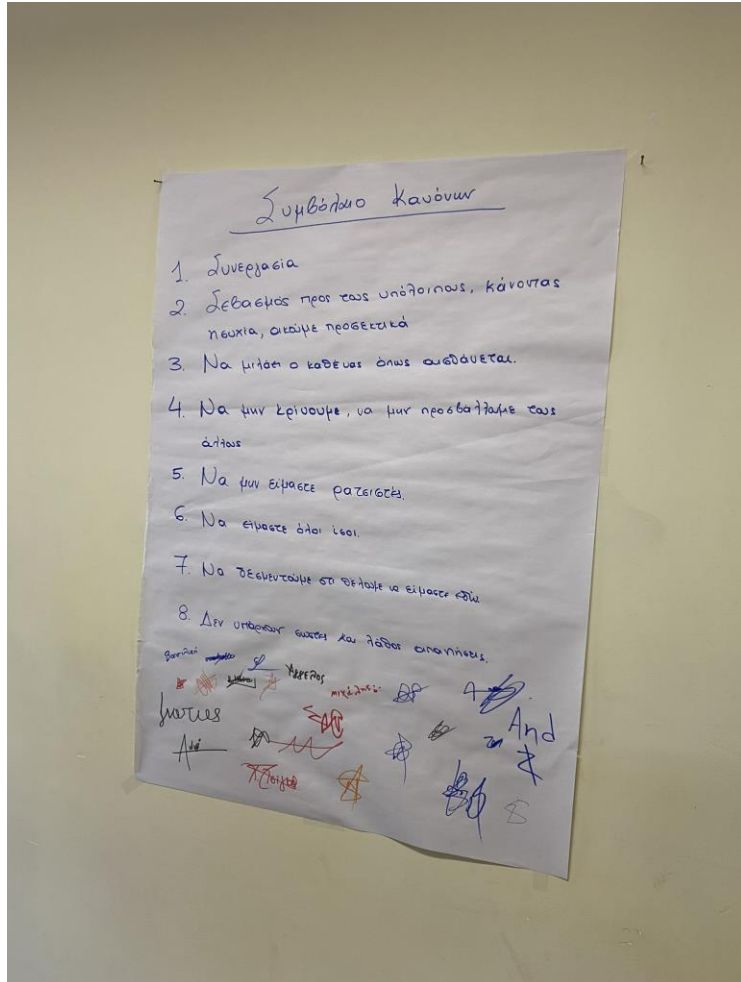 Συμβόλαιο Κανόνων
1. Συνεργασία
2. Σεβασμός προς τους υπόλοιπους, κάνοντας
ησυχία, ακούμε προσεκτικά
3. Να μιλάει ο καθένας όπως αισθάνεται.
4. Να μην κρίνουμε, να μην προσβάλλουμε τους
άλλους
5. Να μην είμαστε ρατσιστές.
6. Να είμαστε όλοι ίσοι.
7. Να δεσμευτούμε ότι θέλουμε να είμαστε εδώ
8. Δεν υπάρχουν σωστές και λάθος απαντήσεις.
Άγγελος
And